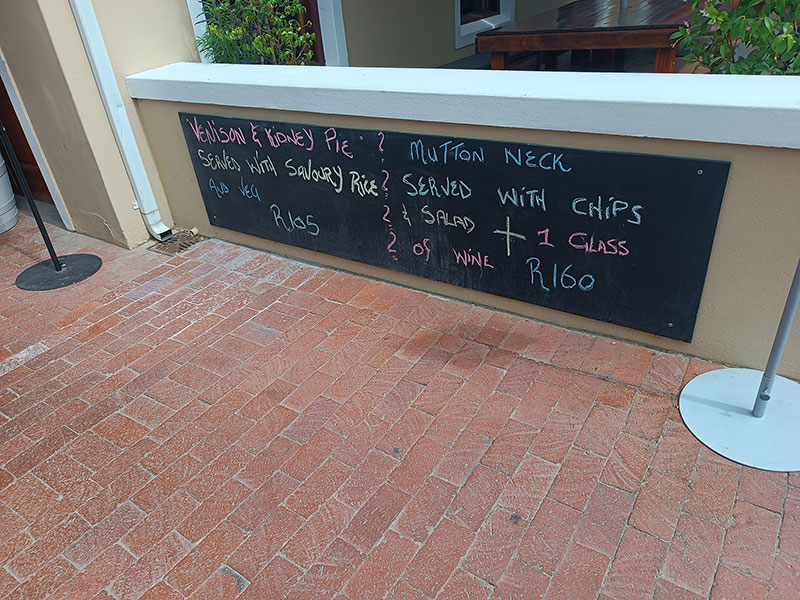 VENISON & KIDNEY PIE
SERVED WITH SAVOURY RICE
AND VEG
R105
MUTTON NECK
SERVED WITH CHIPS
& SALAD + 1 GLASS
OF WINE R160